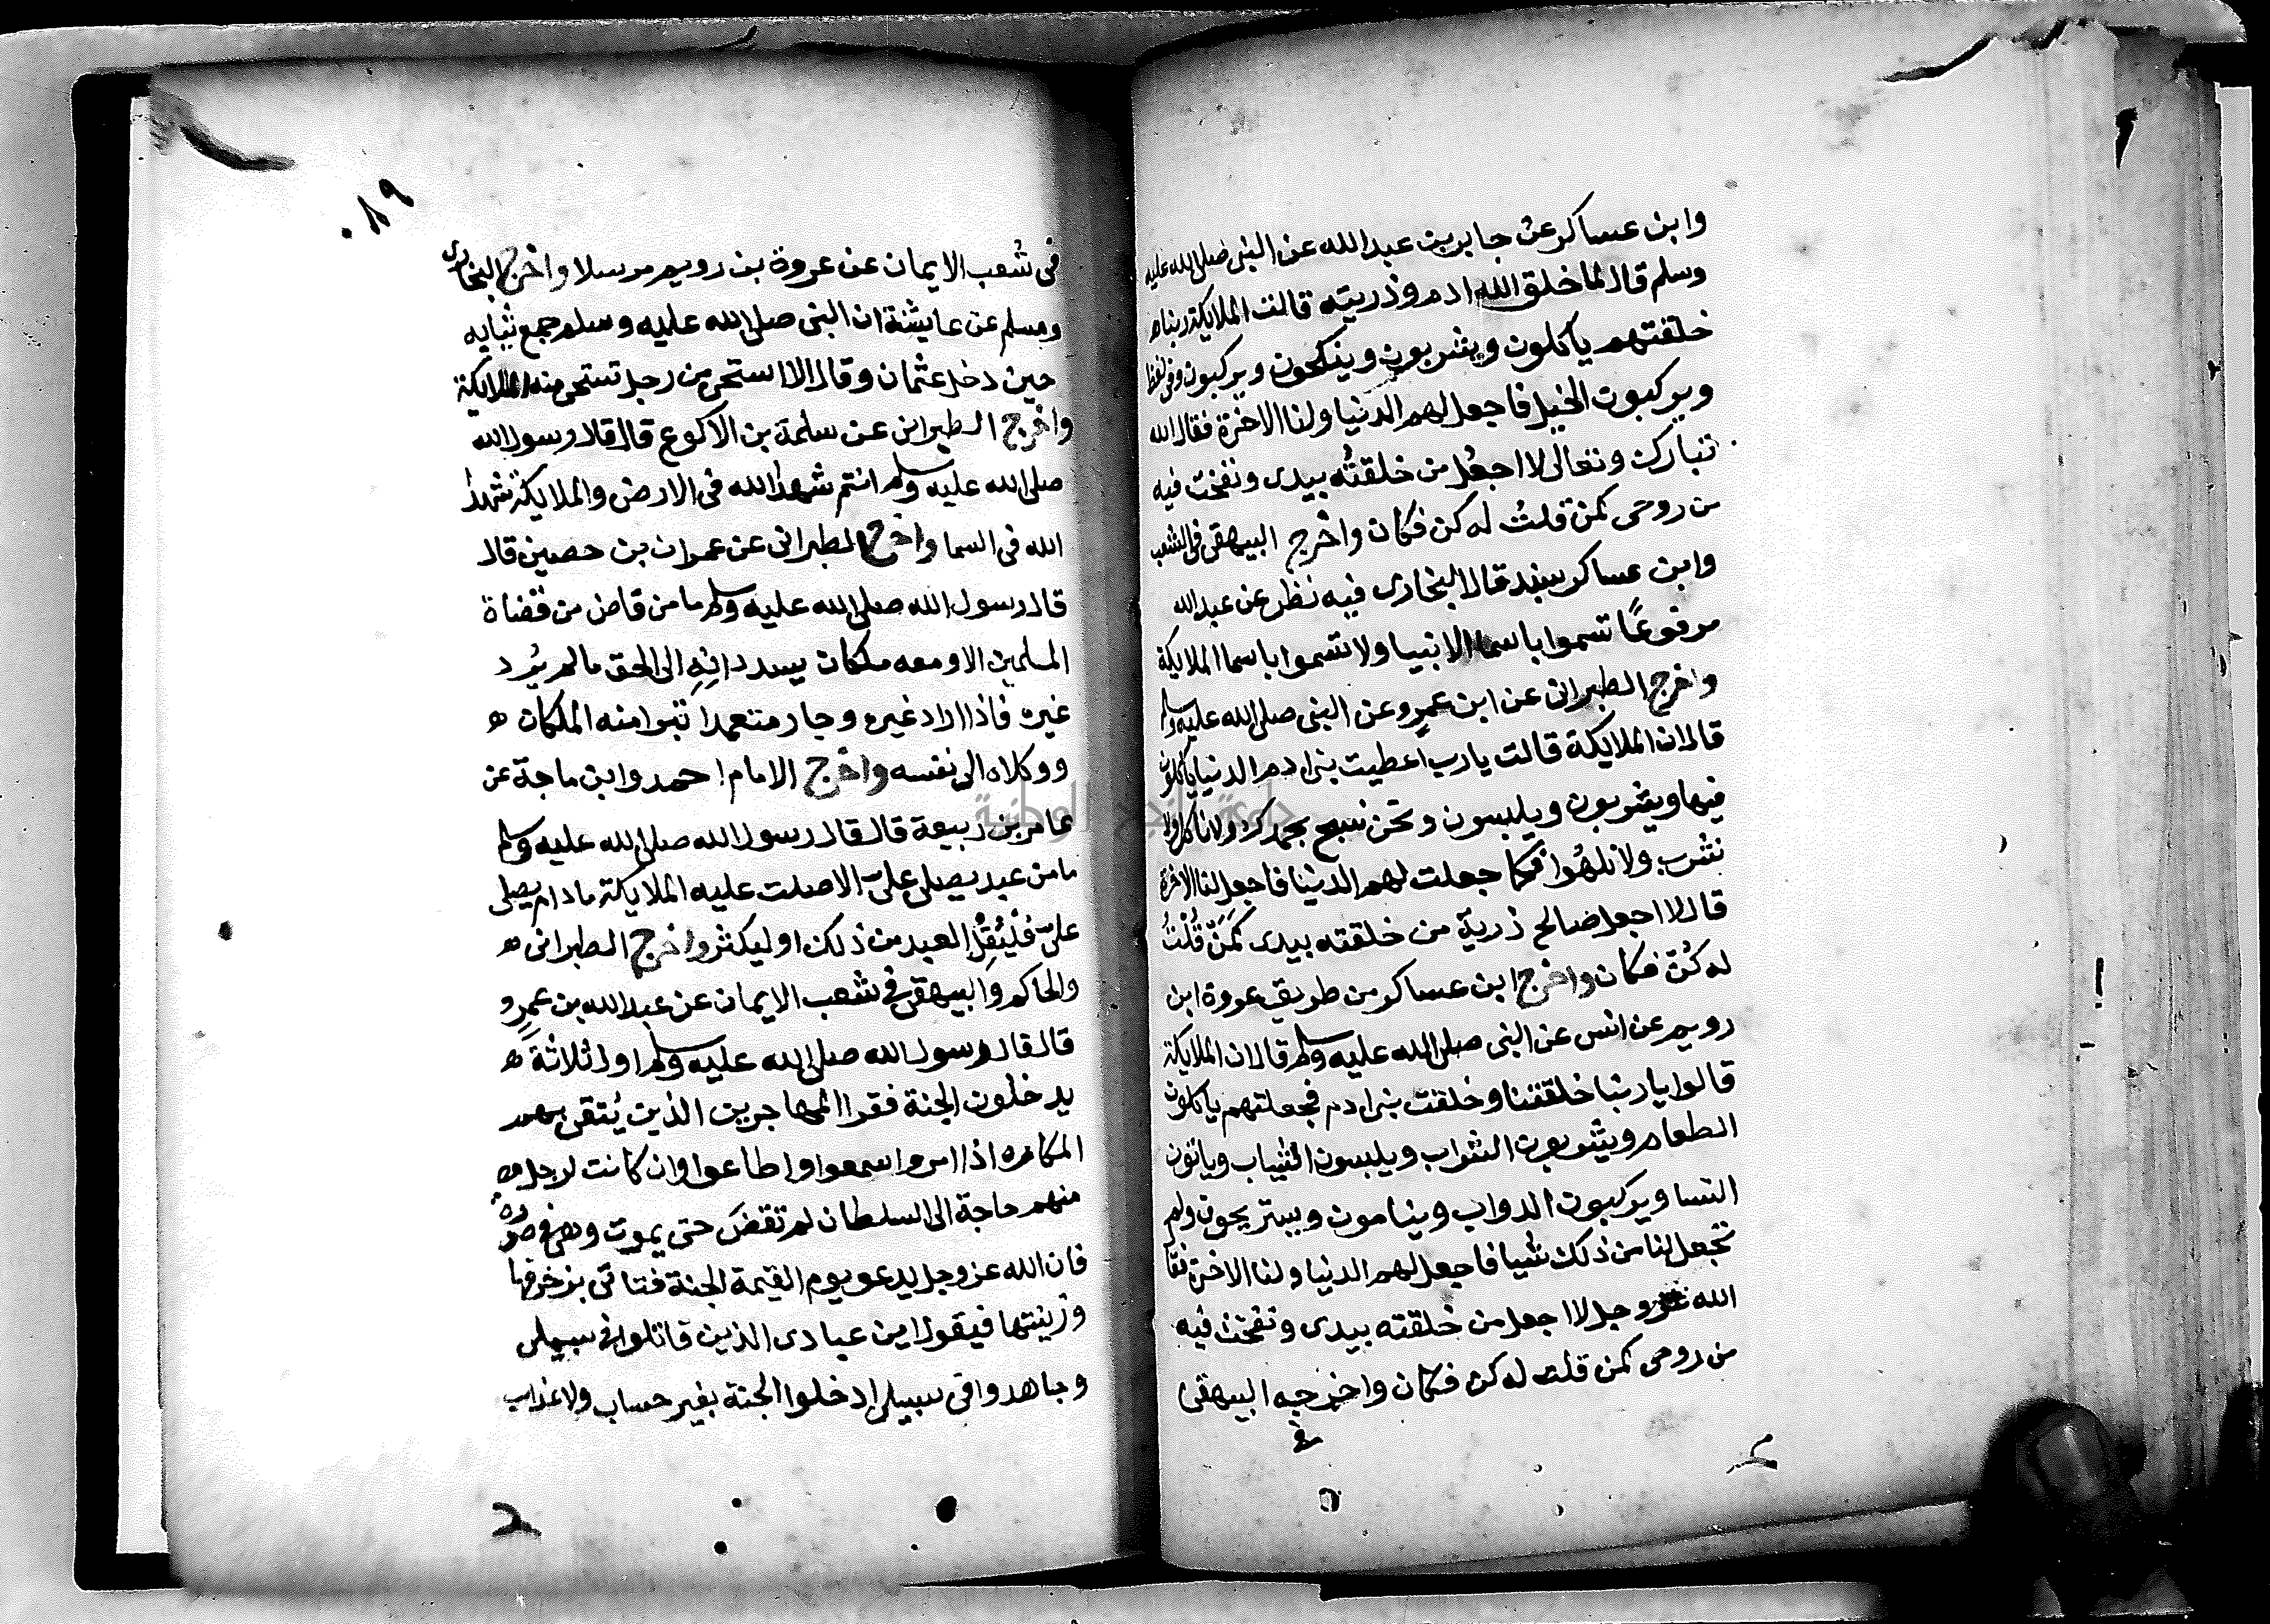 وابن عساكر عن جابر بن عبد الله عن النبى صلى الله عليه
وسلم قال لما خلق الله ادم وذريته قالت الملايكة ربنا
خلقتهم ياكلون ويشربون وينكحون ويركبون وفى لفظ
ويركبون الخيل فاجعل لهم الدنيا ولنا الاخرة فقال الله
تبارك وتعالى لا اجعل من خلقتُه بيدى ونفخت فيه
من روحى كمن قلتُ له كن فكان واخرج البيهقى فى الشعب
وابن عساكر بسند قال البخارى فيه نظر عن عبد الله
مرفوعًا تسموا باسما الانبيا ولا تسموا باسما الملايكة
واخرج الطبرانى عن ابن عمرو عن النبى صلى الله عليه وسلم
قال ان الملايكة قالت يا رب اعطيت بنى ادم الدنيا ياكلون
فيها ويشربون ويلبسون ونحن نسبح بحمدك ولا ناكل ولا
نشرب ولا نلهُوا فكما جعلت لهم الدنيا فاجعل لنا الاخرة
قال لا اجعل صالح ذرية من خلقته بيدى كَمَنّ قُلْتُ
له كُنّ فكان واخرج ابن عساكر من طريق عروة ابن
رويم عن انس عن النبى صلى الله عليه وسلم قال ان الملايكة
قالوا يا ربنا خلقتنا وخلقت بنى ادم فجعلتهم ياكلون
الطعام ويشربون الشراب ويلبسون الثياب وياتون
النسا ويركبون الدواب وينامون ويستريحون ولم
تجعل لنا من ذلك شيا فاجعل لهم الدنيا ولنا الاخرة فقا
الله عز وجل لا اجعل من خلقته بيدى ونفخت فيه
من روحى كمن قلت له كن فكان واخرجه البيهقى
فى
٠٨٩
فى شعب الايمان عن عروة بن رويم مرسلا واخرج البخارى
ومسلم عن عايشة ان النبى صلى الله عليه وسلم جمع ثيابه
حين دخل عثمان وقال الا استحى من رجل تستحى منه الملايكة
واخرج الطبرانى عن سلمة بن الاكوع قال قال رسول الله
صلى الله عليه وسلم انتم شهدا الله فى الارض والملايكة شهدا
الله فى السما واخرج الطبرانى عن عمران بن حصين قال
قال رسول الله صلى الله عليه وسلم ما من قاض من قضاة
المسلمين الا ومعه ملكان يسددانِهِ الى الحق ما لم يُرد
غيره فاذا اراد غيره وجار متعمدا تبرا منه الملكان ه
ووكلاه الى نفسه واخرج الامام احمد وابن ماجة عن
عامر بن ربيعة قال قال رسول الله صلى الله عليه وسلم
ما من عبد يصلى علىّ الا صلت عليه الملايكة ما دام يصلى
علىّ فلْيُقِلّ العبد من ذلك او ليكثر واخرج الطبرانى ه
والحاكم والبيهقى فى شعب الايمان عن عبد الله بن عمرو
قال قال رسول الله صلى الله عليه وسلم اول ثلاثة ه
يدخلون الجنة فقرا المهاجرين الذين يُتقى بهم
المكاره اذا امروا سمعوا واطاعوا وان كانت لرجل
منهم حاجة الى السلطان لم تقض حتى يموت وهى فى صدره
فان الله عز وجل يدعو يوم القيمة الجنة فتاتى بزخرفها
وزينتها فيقول اين عبادى الذين قاتلوا فى سبيلى
وجاهدوا فى سبيلى ادخلوا الجنة بغير حساب ولا عذاب
جامعة النجاح الوطنية